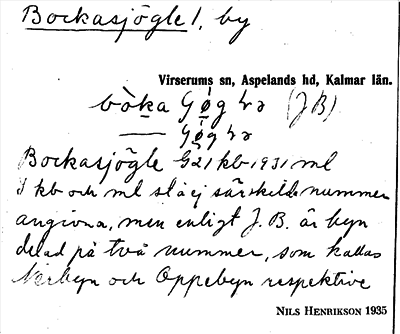 Bockasjögle 1, by
Virserums sn, Aspelands hd, Kalmar län.
(JB)
Bockasjögle G21 kb 1931 ml
I kb och ml stå ej särskilda nummer
angivna, men enligt J.B. är byn
delad på två nummer, som kallas
Nerbyn och Oppebyn respektive
NILS HENRIKSON 1935